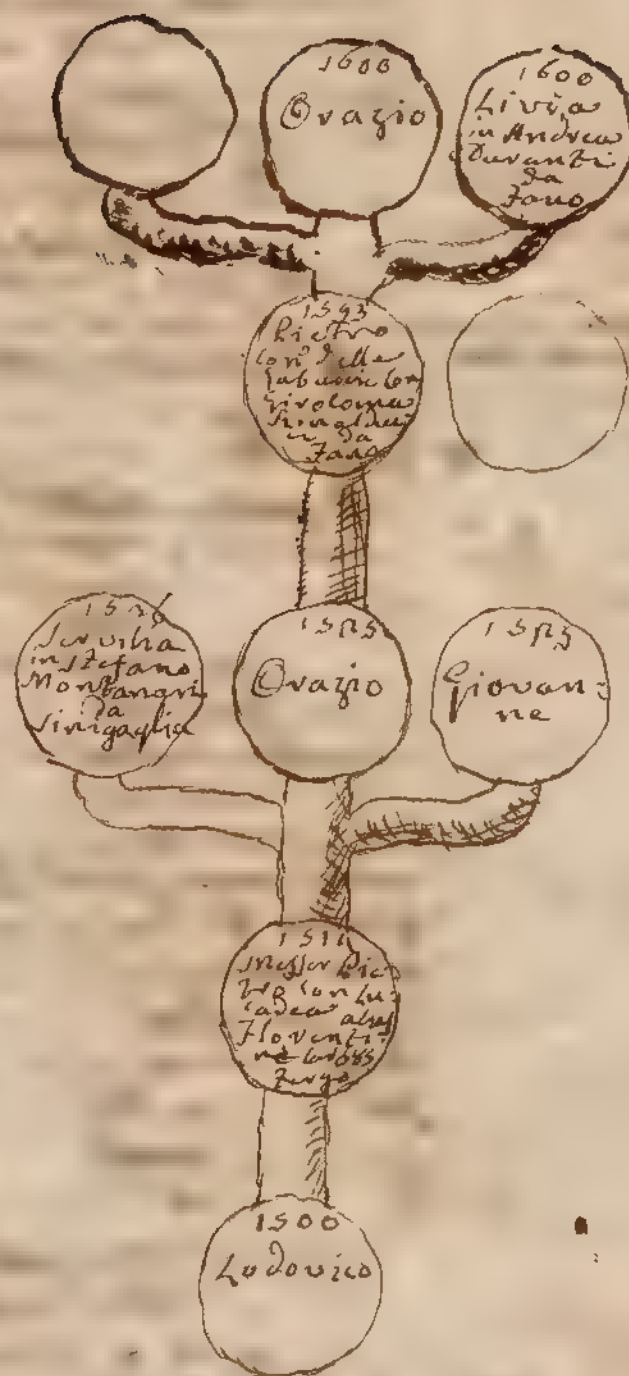 1600
Orazio
1600
Livia
in Andrea
Duranti
da
Fano
1593
Pietro
Con
Girolama
da
Fano
1526
Servilia
in Stefano
Montanari
da
Sinigaglia
1525
Orazio
1525
Giovan=
ne
151
Messer Pie=
tro con Lu=
Florenti=
1500
Ludovico